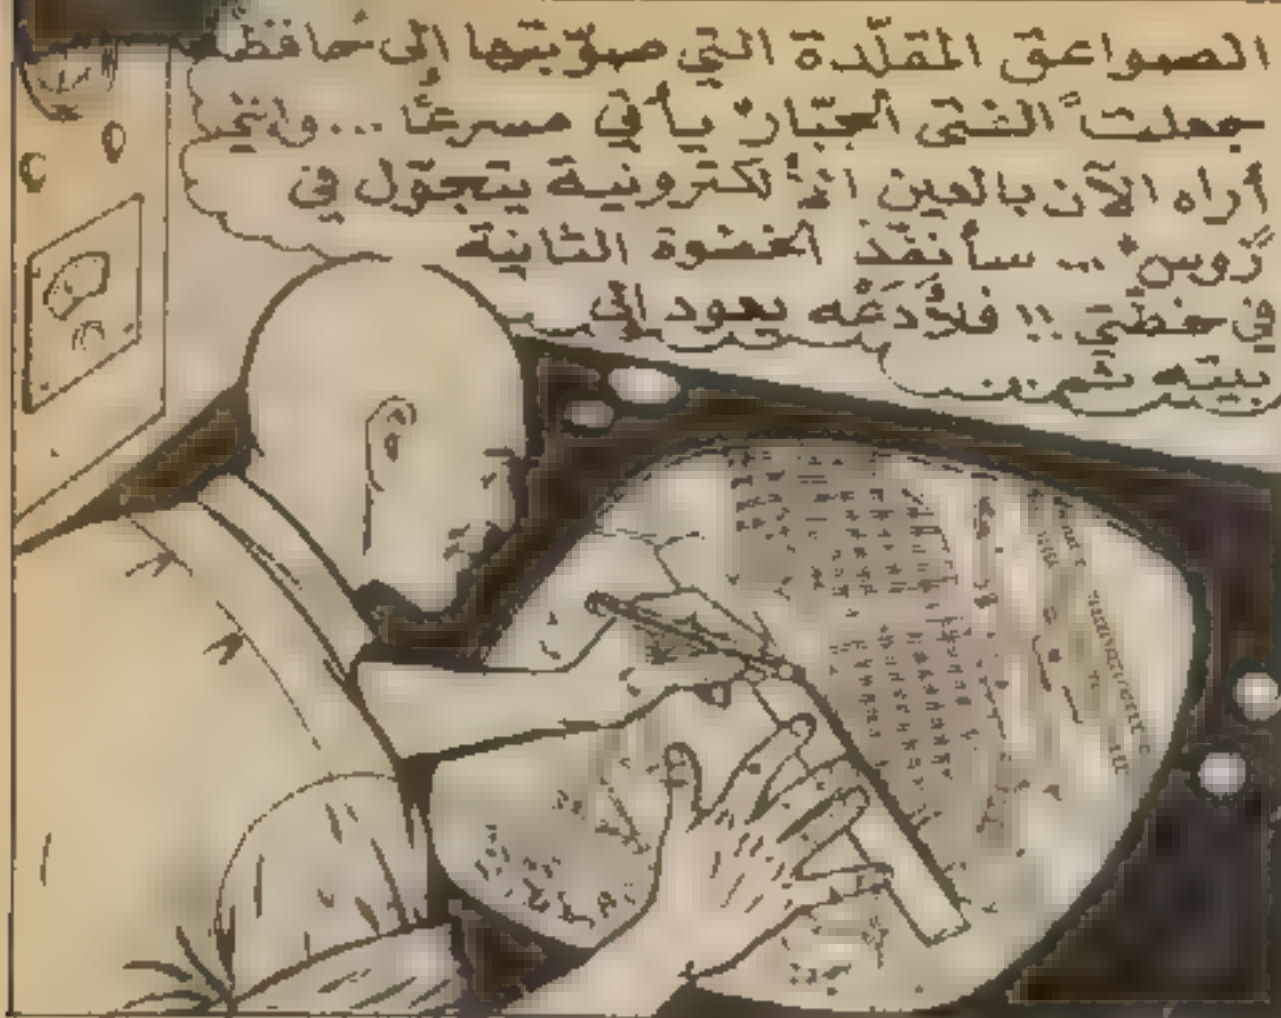 الصواعق المقلّدة التي صوّبتها إلى حافظ
جعلت الفتى الجبّار يأتي مسرعًا ... وانّي
أراه الآن بالعين الألكترونية يتجوّل في
... سأنفّذ الخطوة الثانية
في خطّتي !! فلأَدَعْه يعود إلى
بيته ثم ...